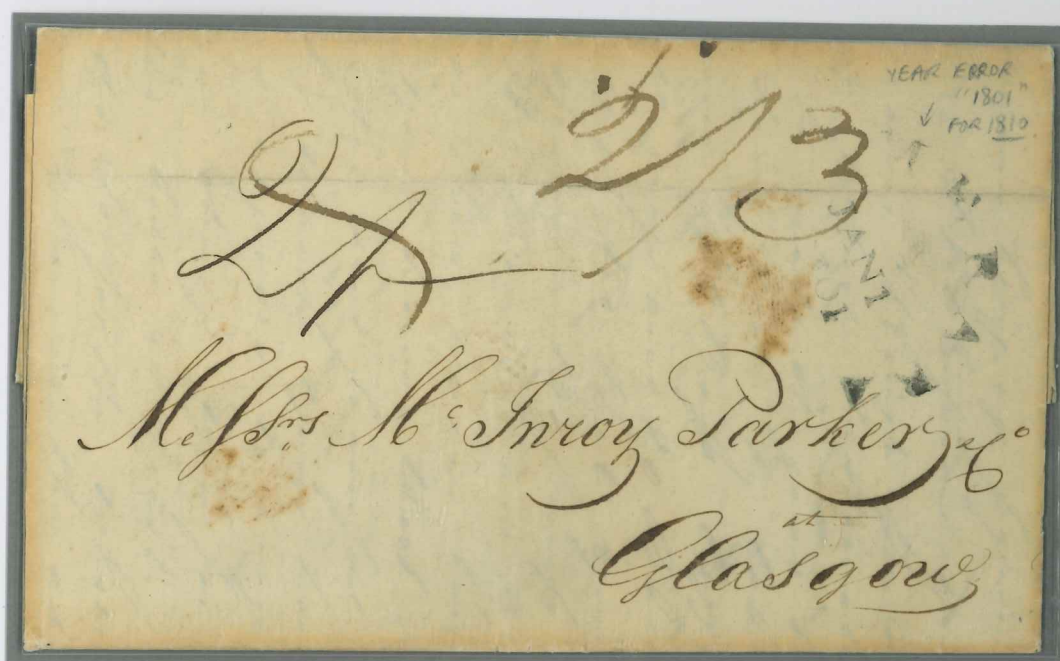 YEAR ERROR
"1801"
FOR 1810
2/3
2/
JAN 1
Messrs Mc Inroy Parker & Co
at
Glasgow